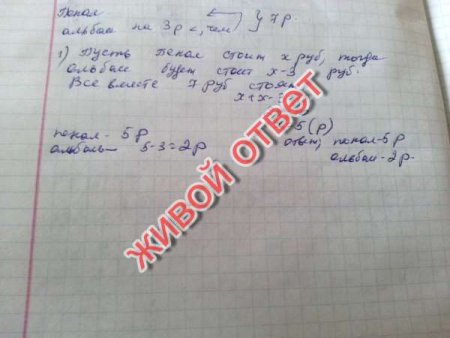 Пенал } 7 р.
альбом на 3р <, чем
1) Пусть пенал стоит x руб, тогда
альбом будет стоит x-3 руб.
Все вместе 7 руб стоят
x+x-3
5(р)
пенал - 5р
альбом - 5-3=2р
ответ; пенал-5р
альбом-2р.
ЖИВОЙ ОТВЕТ